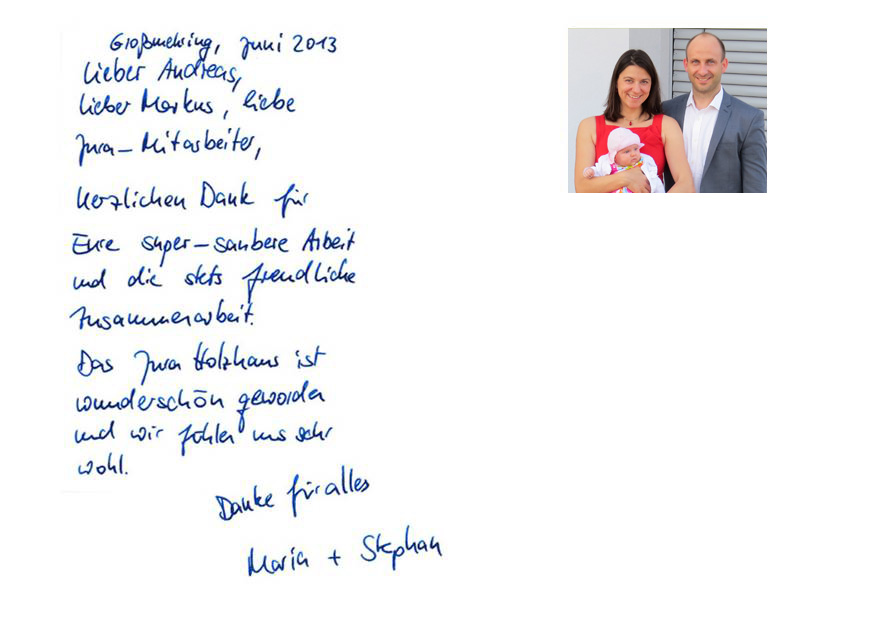 Großmehring, Juni 2013
Lieber Andreas,
lieber Markus, liebe
Jura-Mitarbeiter,
herzlichen Dank für
Eure super-saubere Arbeit
und die stets freundliche
Zusammenarbeit.
Das Jura Holzhaus ist
wunderschön geworden
und wir fühlen uns sehr
wohl.
Danke für alles
Maria + Stephan